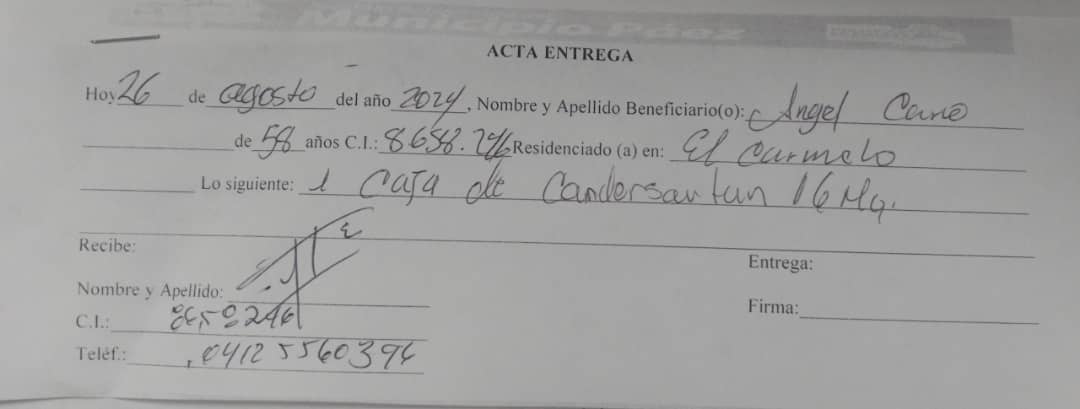 Municipio Páez
ACTA ENTREGA
Hoy 26 de agosto del año 2024, Nombre y Apellido Beneficiario(o): Angel Cano
de 58 años C.I.: 8.658.246 Residenciado (a) en: El Carmelo
Lo siguiente: 1 Caja de Candersartan 16 Mg.
Recibe:
Entrega:
Nombre y Apellido:
Firma:
C.I.: 8658246
Teléf.: 04125560394